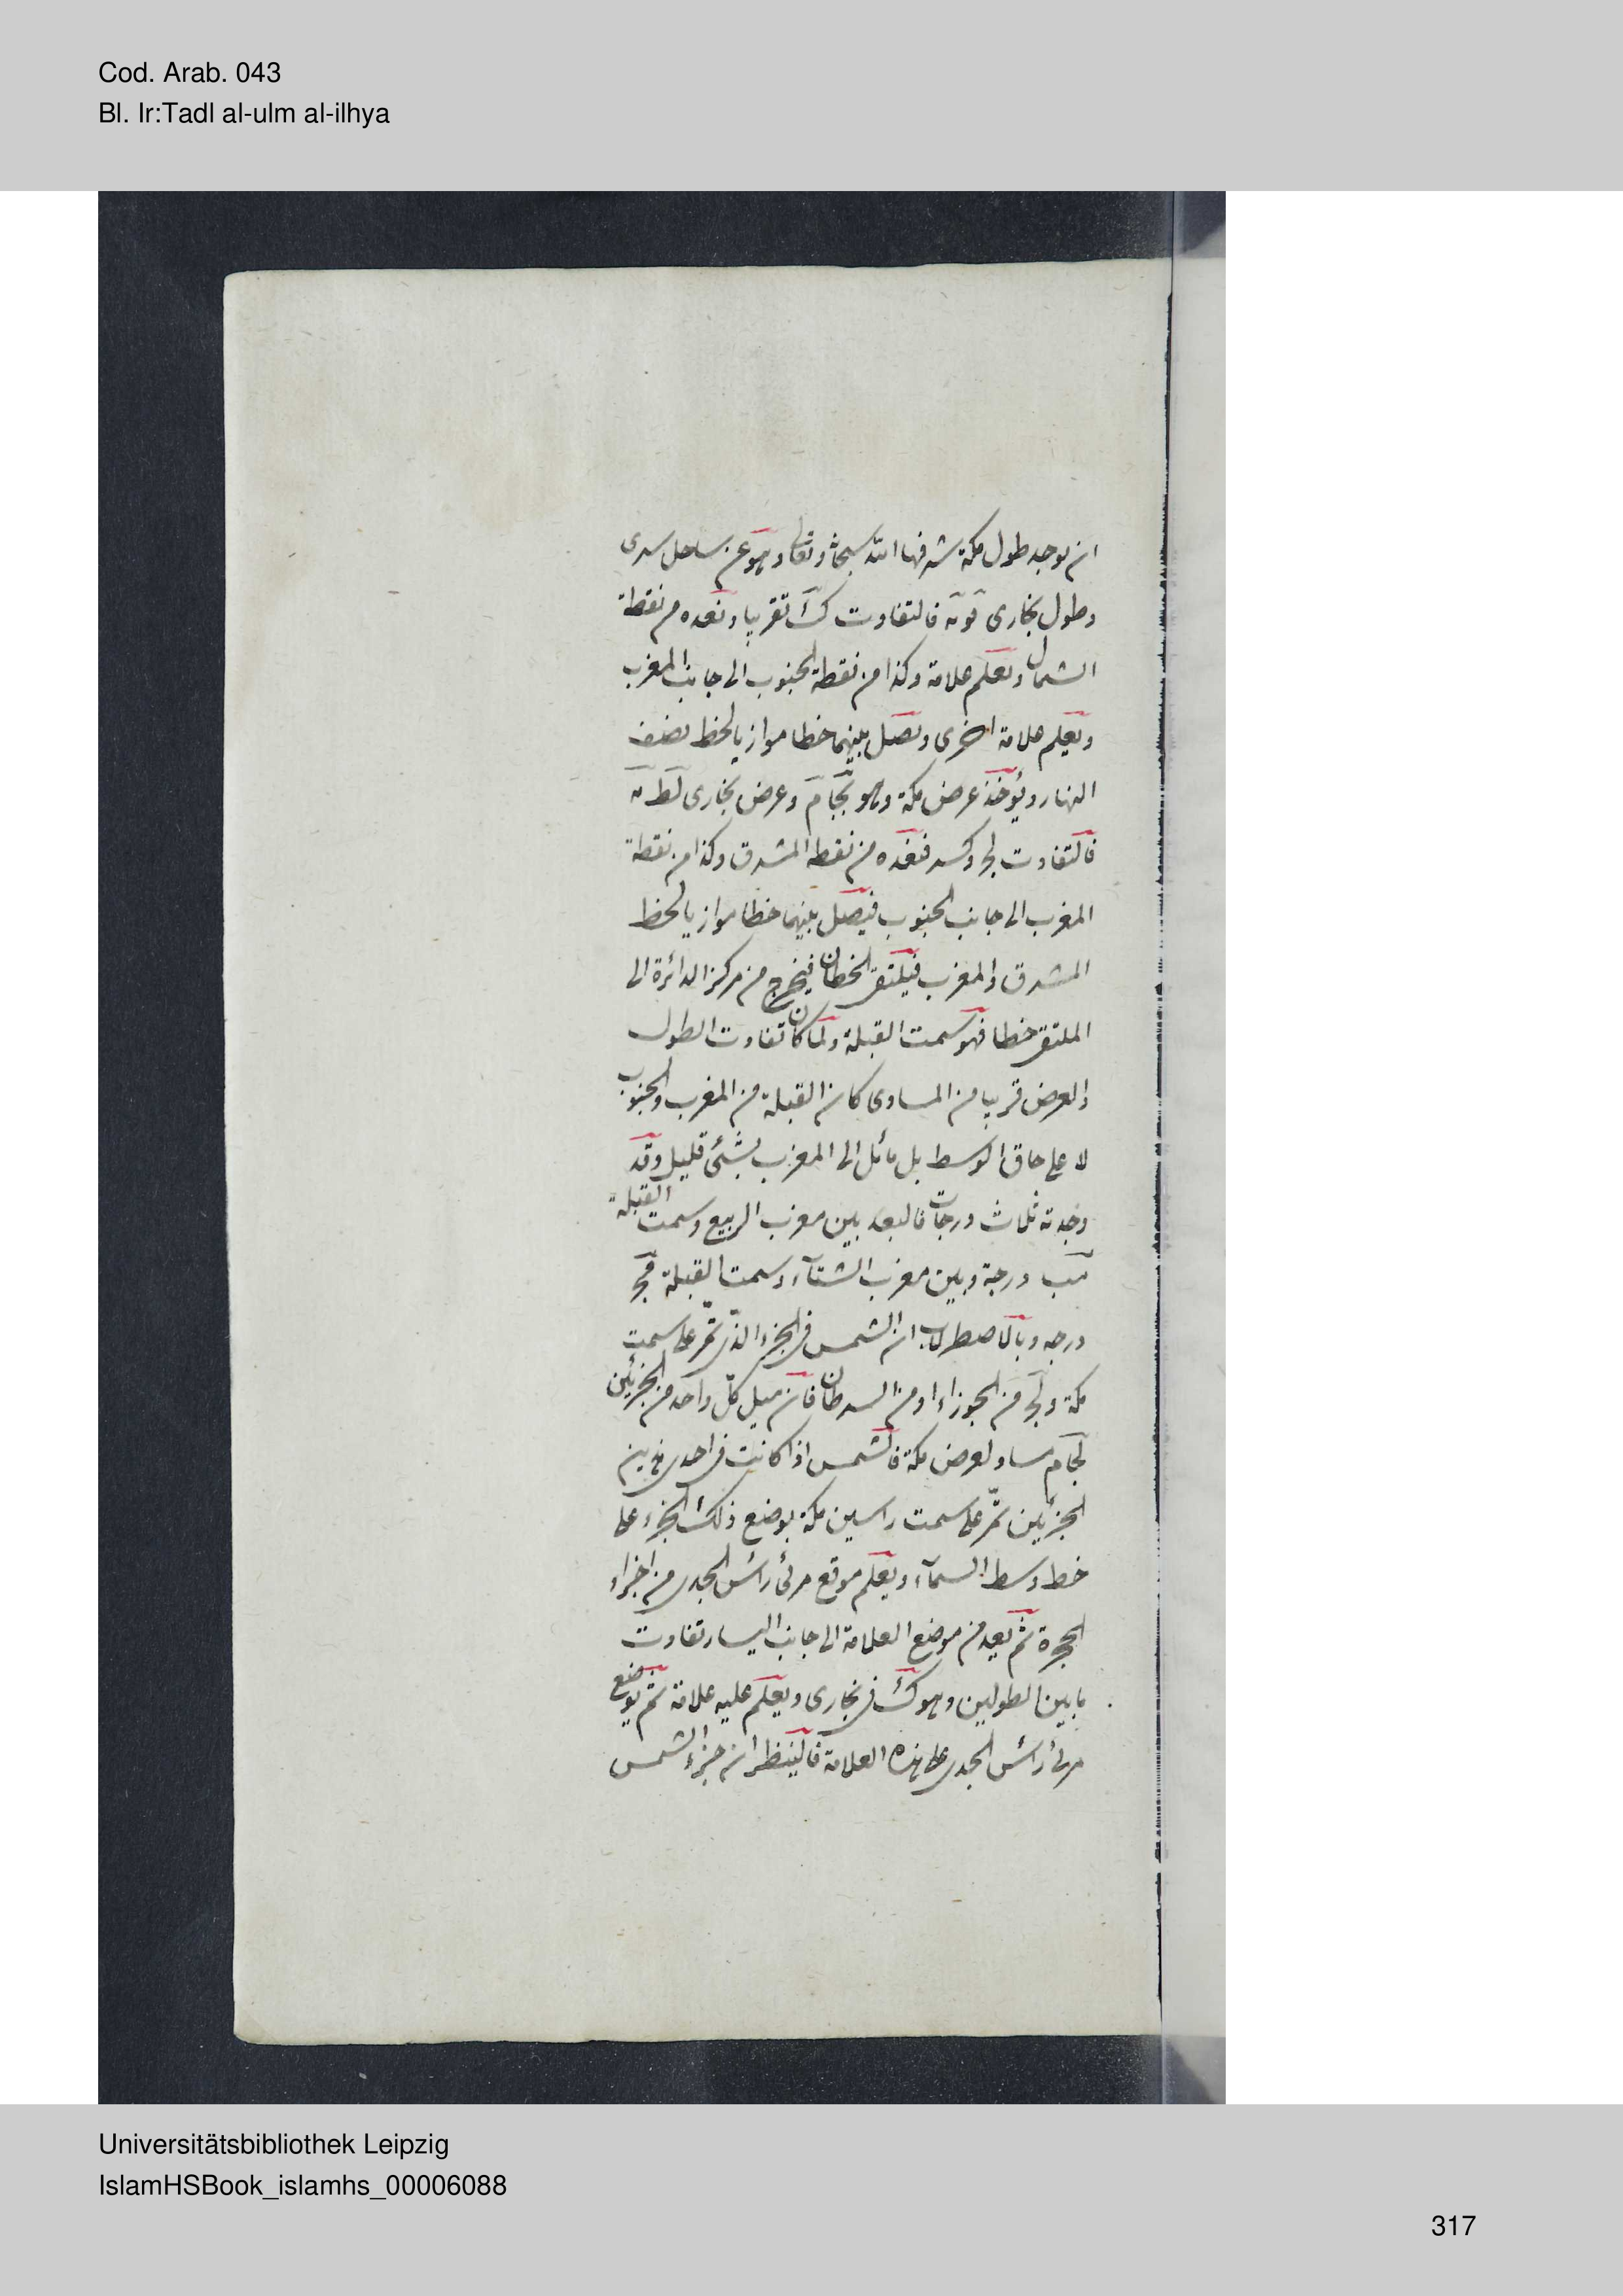 Cod. Arab. 043
Bl. Ir:Tadl al-ulm al-ilhya
ان يوجد طول مكة شرفها الله سبحانه وتعالى وهو عز ساحل
وطول بخارى فالتفاوت ك تقريبا ونعده من نقطة
الشمال ونعلم علامة وكذا من نقطة الجنوب الى جانب المغرب
ونعلم علامة اخرى ونصل بينهما خطا موازيا لخط نصف
النهار ويؤخذ عرض مكة وهو كجا م وعرض بخارى لط
فالتفاوت يح وكسر فنعده من نقطة المشرق وكذا من نقطة
المغرب الى جانب الجنوب فيصل بينهما خطا موازيا لخط
المشرق والمغرب فيلتقى الخطان فيخرج من مركز الدائرة الى
الملتقى خطا فهو سمت القبلة ولما كان تفاوت الطول
والعرض قريبا من المساوى كان القبلة من المغرب والجنوب
لا على حاق الوسط بل مائل الى المغرب بشئ قليل وقد
وجدته ثلاث درجات فالبعد بين مغرب الربيع وسمت القبلة
مب درجة وبين مغرب الشتاء وسمت القبلة
درجه وبالاصطرلاب ان الشمس فى الجزء الذى تمر على سمت
مكة من الجوزاء او من السرطان فان ميل كل واحد من الجزئين
كجا م مساو لعرض مكة فالشمس اذا كانت فى احدى هذين
الجزئين تمر على سمت راسين مكة يوضع ذلك الجزء على
خط وسط السماء ويعلم موقع مرئ رأس الجدى من اجزاء
الحجرة ثم يعد من موضع العلامة الى جانب اليسار تفاوت
ما بين الطولين وهو ك فى بخارى ويعلم عليه علامة ثم يوضع
مرئ رأس الجدى على هذه العلامة فالينظر ان جزء الشمس
Universitätsbibliothek Leipzig
IslamHSBook_islamhs_00006088
317